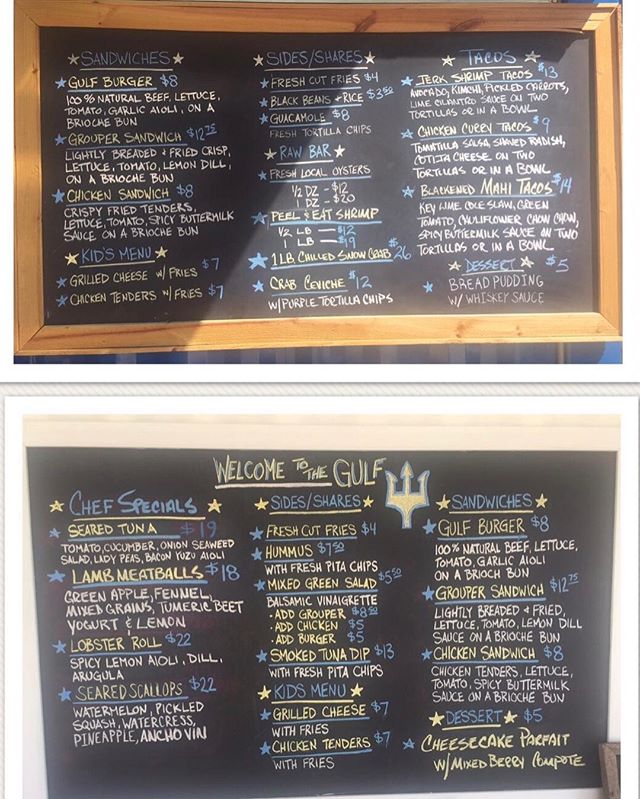 SANDWICHES
GULF BURGER $8
100% NATURAL BEEF, LETTUCE,
TOMATO, GARLIC AIOLI, ON A
BRIOCHE BUN
GROUPER SANDWICH $12.75
LIGHTLY BREADED & FRIED CRISP,
LETTUCE, TOMATO, LEMON DILL,
ON A BRIOCHE BUN
CHICKEN SANDWICH $8
CRISPY FRIED TENDERS,
LETTUCE, TOMATO, SPICY BUTTERMILK
SAUCE ON A BRIOCHE BUN
KID'S MENU
GRILLED CHEESE W/ FRIES $7
CHICKEN TENDERS W/ FRIES $7
SIDES/SHARES
FRESH CUT FRIES $4
BLACK BEANS + RICE $3.50
GUACAMOLE $8
FRESH TORTILLA CHIPS
RAW BAR
FRESH LOCAL OYSTERS
1/2 DZ - $12
1 DZ - $20
PEEL & EAT SHRIMP
1/2 LB — $12
1 LB — $19
1 LB CHILLED SNOW CRAB $26
CRAB CEVICHE $12
W/ PURPLE TORTILLA CHIPS
TACOS
JERK SHRIMP TACOS $13
AVOCADO, KIMCHI, PICKLED CARROTS,
LIME CILANTRO SAUCE ON TWO
TORTILLAS OR IN A BOWL
CHICKEN CURRY TACOS $9
TOMATILLA SALSA, SHAVED RADISH,
COTIJA CHEESE ON TWO
TORTILLAS OR IN A BOWL
BLACKENED MAHI TACOS $14
KEY LIME COLE SLAW, GREEN
TOMATO, CAULIFLOWER CHOW CHOW,
SPICY BUTTERMILK SAUCE ON TWO
TORTILLAS OR IN A BOWL
DESSERT $5
BREAD PUDDING
W/ WHISKEY SAUCE
WELCOME TO THE GULF
CHEF SPECIALS
SEARED TUNA $19
TOMATO, CUCUMBER, ONION SEAWEED
SALAD, LADY PEAS, BACON YUZU AIOLI
LAMB MEATBALLS $18
GREEN APPLE, FENNEL,
MIXED GRAINS, TUMERIC BEET
YOGURT & LEMON
LOBSTER ROLL $22
SPICY LEMON AIOLI, DILL,
ARUGULA
SEARED SCALLOPS $22
WATERMELON, PICKLED
SQUASH, WATERCRESS,
PINEAPPLE, ANCHO VIN
SIDES/SHARES
FRESH CUT FRIES $4
HUMMUS $7.50
WITH FRESH PITA CHIPS
MIXED GREEN SALAD $5.50
BALSAMIC VINAIGRETTE
- ADD GROUPER $8.50
- ADD CHICKEN $5
- ADD BURGER $5
SMOKED TUNA DIP $13
WITH FRESH PITA CHIPS
KIDS MENU
GRILLED CHEESE $7
WITH FRIES
CHICKEN TENDERS $7
WITH FRIES
SANDWICHES
GULF BURGER $8
100% NATURAL BEEF, LETTUCE,
TOMATO, GARLIC AIOLI
ON A BRIOCH BUN
GROUPER SANDWICH $12.75
LIGHTLY BREADED & FRIED,
LETTUCE, TOMATO, LEMON DILL
SAUCE ON A BRIOCHE BUN
CHICKEN SANDWICH $8
CHICKEN TENDERS, LETTUCE,
TOMATO, SPICY BUTTERMILK
SAUCE ON A BRIOCHE BUN
DESSERT $5
CHEESECAKE PARFAIT
W/ MIXED BERRY COMPOTE